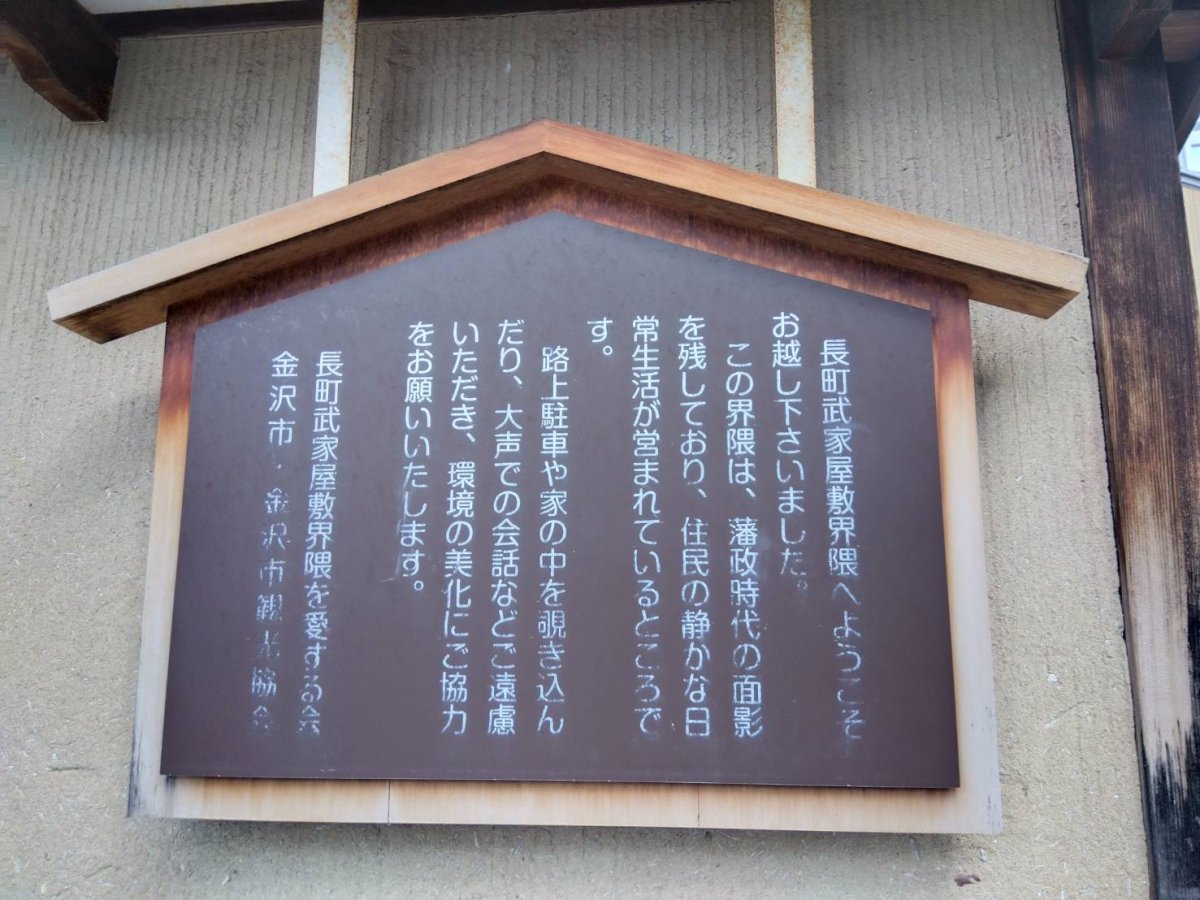 長町武家屋敷界隈へようこそ
お越し下さいました。
この界隈は、藩政時代の面影
を残しており、住民の静かな日
常生活が営まれているところで
す。
路上駐車や家の中を覗き込ん
だり、大声での会話などご遠慮
いただき、環境の美化にご協力
をお願いいたします。
長町武家屋敷界隈を愛する会
金沢市・金沢市観光協会